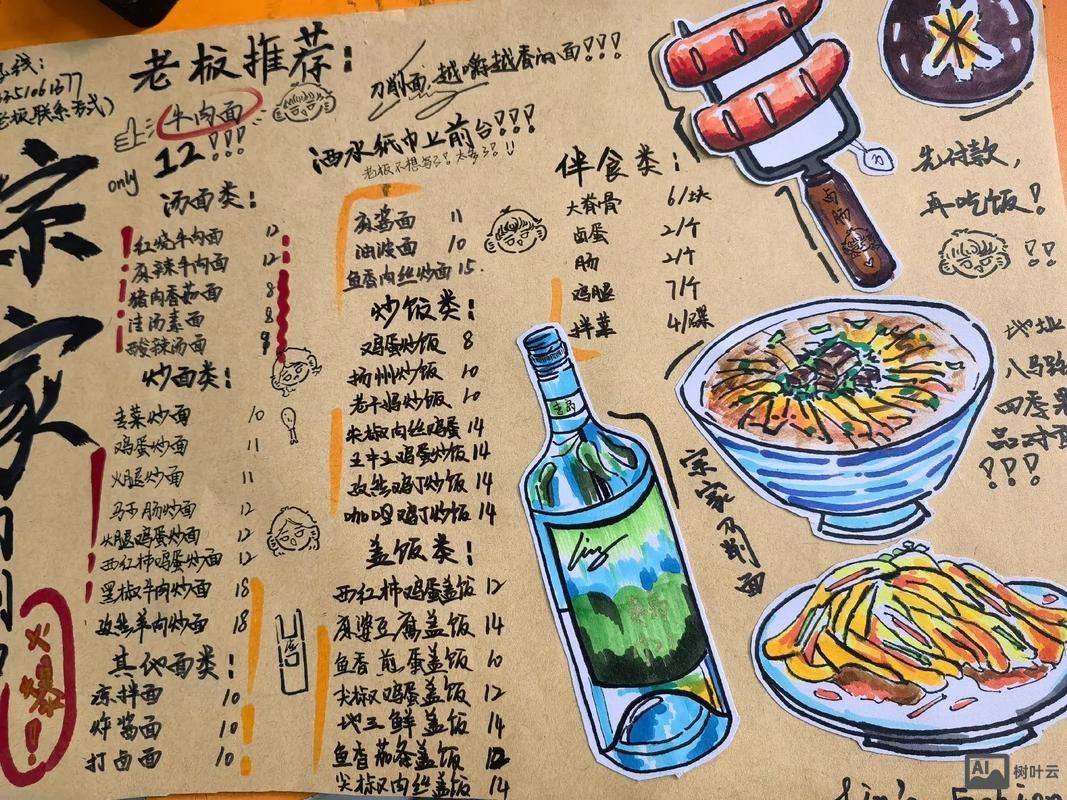 老板推荐：
牛肉面
only 12!!!
老板联系方式)
宗家
刀削面 越嚼越香的面!!!
酒水纸巾上前台!!!
汤面类：
红烧牛肉面 12
麻辣牛肉面 12
猪肉香菇面 8
洼汤素面 8
酸辣汤面 9
炒面类：
青菜炒面 10
鸡蛋炒面 11
火腿炒面 11
马子肠炒面 12
火腿鸡蛋炒面 12
西红柿鸡蛋炒面 12
黑椒牛肉炒面 18
孜然羊肉炒面 18
其他面类：
凉拌面 10
炸酱面 10
打卤面 10
火爆!
麻酱面 11
油泼面 10
鱼香肉丝炒面 15.
炒饭类：
鸡蛋炒饭 8
扬州炒饭 10
老干妈炒饭 10
尖椒肉丝鸡蛋 14
孜然鸡丁炒饭 14
咖喱鸡丁炒饭 14
盖饭类：
西红柿鸡蛋盖饭 12
麻婆豆腐盖饭 14
鱼香煎蛋盖饭 10
尖椒鸡蛋盖饭 12
地三鲜盖饭 14
鱼香茄条盖饭 12
尖椒肉丝盖饭 14
伴食类：
大脊骨 6/块
卤蛋 2/个
肠 2/个
鸡腿 7/个
拌菜 4/碟
卤肠
先付款，
再吃饭!
!!
地址
八马路
四季果
品对面
!!!
宗家刀削面
ling
AI 树叶云